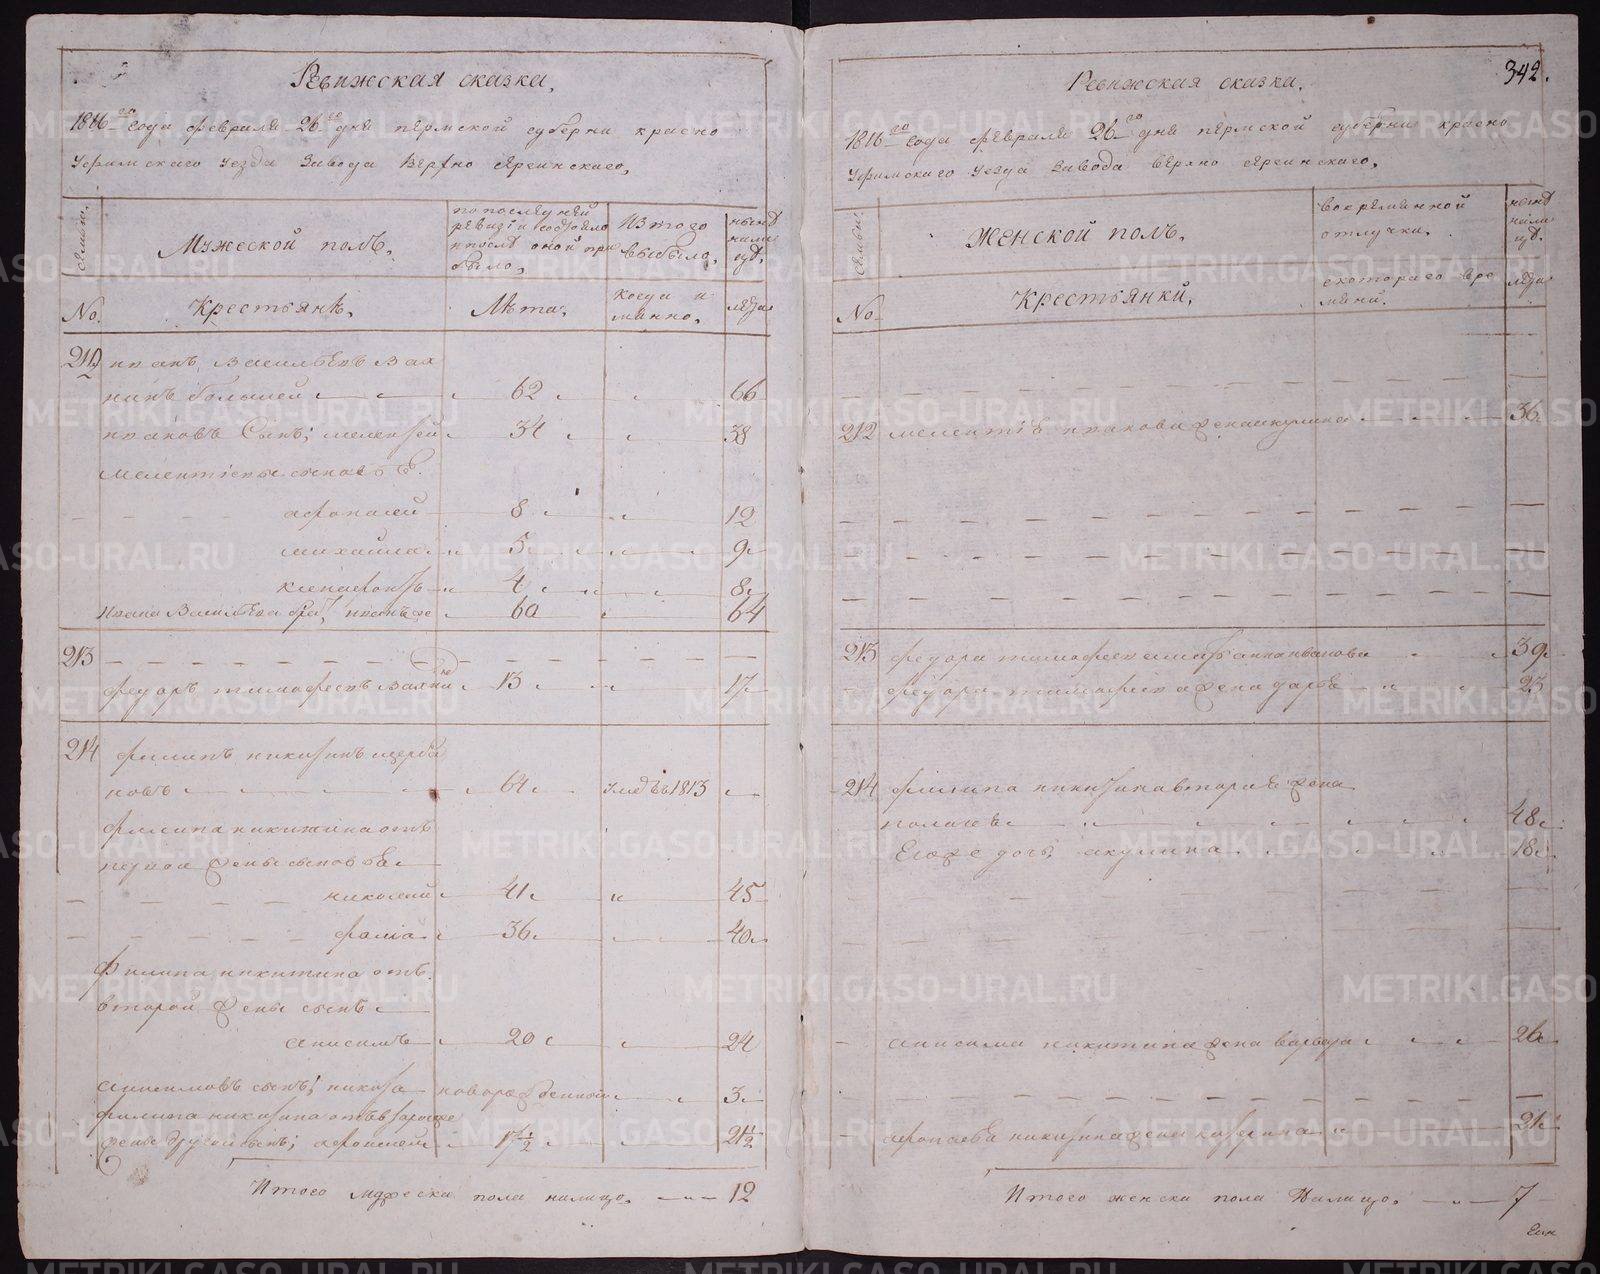 Ревижская сказка.
1816го года февраля 26го дня пермской губерни красно
Уфимскаго Уезда Завода Верхно Сергинскаго,
семьи.
Мужеской полъ,
по последней
ревизiи состояло
и после оной при
было,
Из того
выбыло,
ныне
нали
цо.
No.
Крестьяне,
Лѣта,
когда и
манно,
лѣта
212 иванъ васильевъ вах
нинъ большей 62 66
ивановъ Сынъ, мелентей 34 38
мелентiевы сыновья
афонасей 8 12
михайла 5 9
ксенофонтъ 4 8
Ивана Васильева братъ иванъ же 60 64
213
федоръ тимофеевъ вахнинъ 13 17
214 филипъ никитинъ щерба
ковъ 64 умре въ 1813
филипа никитина отъ
первой жены сыновья
николай 41 45
фома 36 40
Филипа никитина отъ
второй жены сынъ
анисимъ 20 24
анисимовъ сынъ, никита новорожденной 3
филипа никитина отъ второй же
жены другой сынъ, афонасей 17½ 21½
Итого мужеска пола налицо, 12
342.
Ревижская сказка.
1816го года февраля 26го дня пермской губерни красно
Уфимскаго Уезда Завода верхно сергинскаго,
семьи.
Женской полъ,
во временной
отлучки,
ныне
нали
цо.
No.
Крестьянки,
с котораго вре
мяни.
лѣта
212 мелентiя иванова жена акулина 36
213 федора тимофеева мать анна иванова 39
федора тимофеева жена дарья 23
214 филипа никитина вторая жена
пелагея 48
Егоже дочь, акулина 18
анисима никитина жена варвара 26
афонасья никитина жена катерина 21
Итого женска пола Налицо, 7